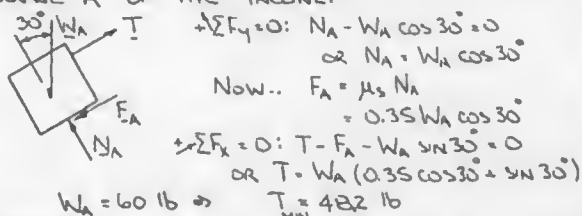 30° W_A T +↖ΣF_y=0: N_A - W_A cos 30° = 0
OR N_A = W_A cos 30°
NOW.. F_A = μ_s N_A
= 0.35 W_A cos 30°
F_A
N_A +↗ΣF_x = 0: T - F_A - W_A SIN 30° = 0
OR T = W_A (0.35 cos 30° + SIN 30°)
W_A = 60 lb ⇒ T = 48.2 lb